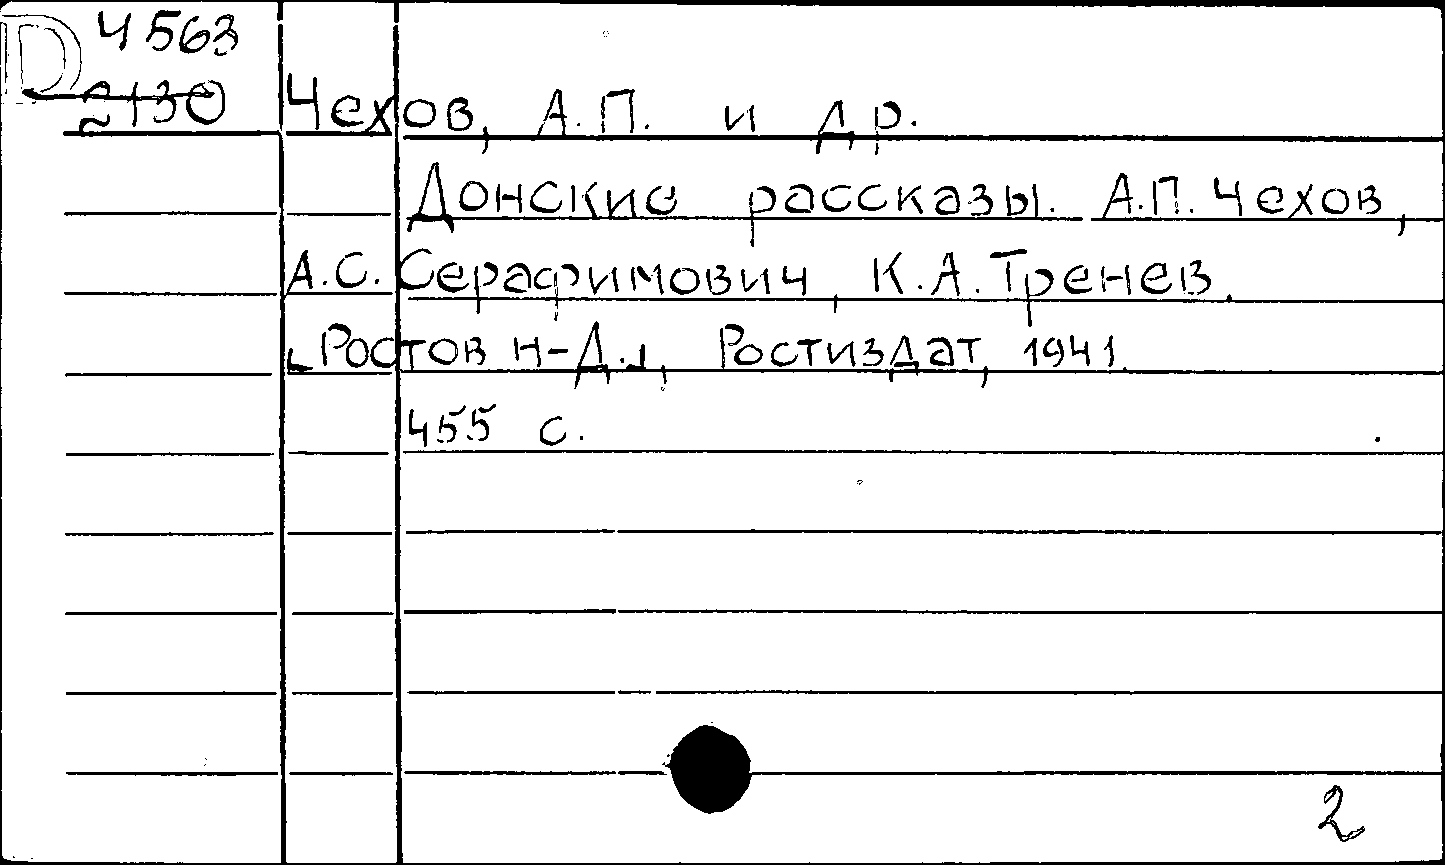 D Ч 563
2130
Чехов, А.П. и др.
Донские рассказы. А.П. Чехов,
А.С. Серафимович, К.А. Тренев.
[Ростов н-Д.], Ростиздат, 1941.
455 с.
2